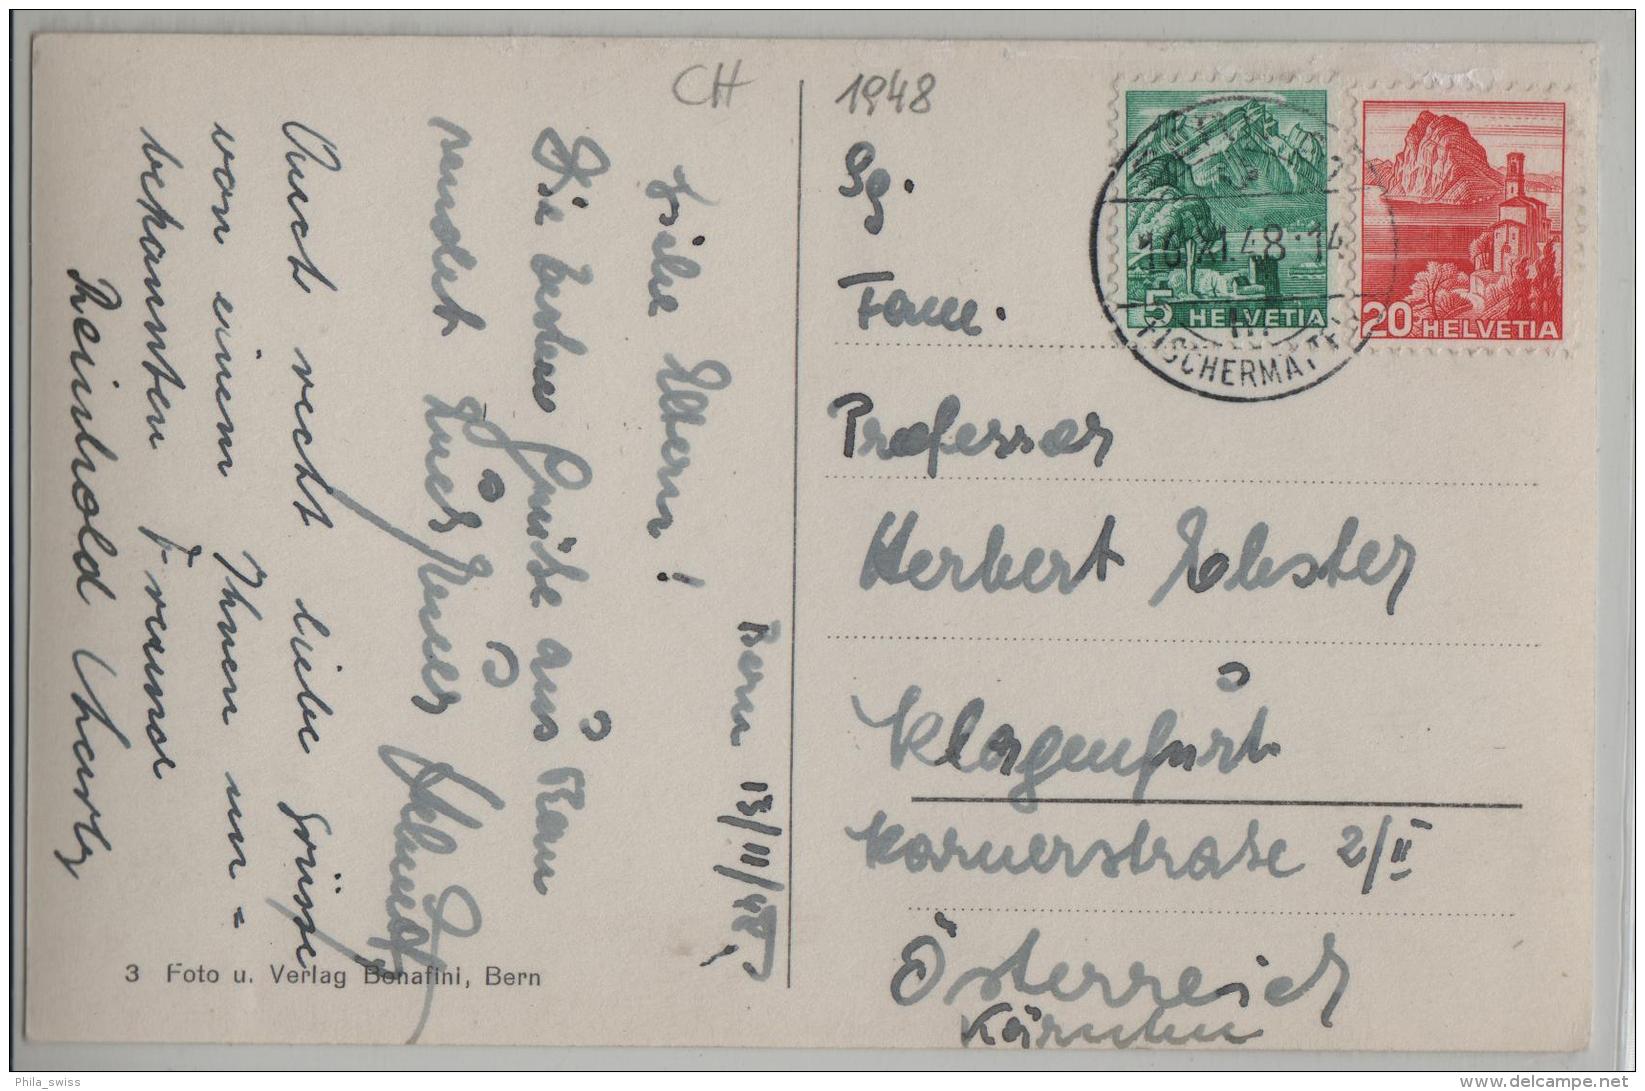 CH
1948
Bern 13/11/48.
Liebe Eltern!
Die besten Grüße aus Bern
sendet Euer Helmut
Auch recht liebe Grüsse
von einem Ihnen un=
bekannten Freund
Reinhold
Fam.
Professor
Herbert
Klagenfurt
Karnerstraße 2/II
Österreich
Kärnten
5 HELVETIA
20 HELVETIA
16.XI.48-14
FISCHERMÄTT
3 Foto u. Verlag Bonafini, Bern
Phila_swiss
www.delcampe.net